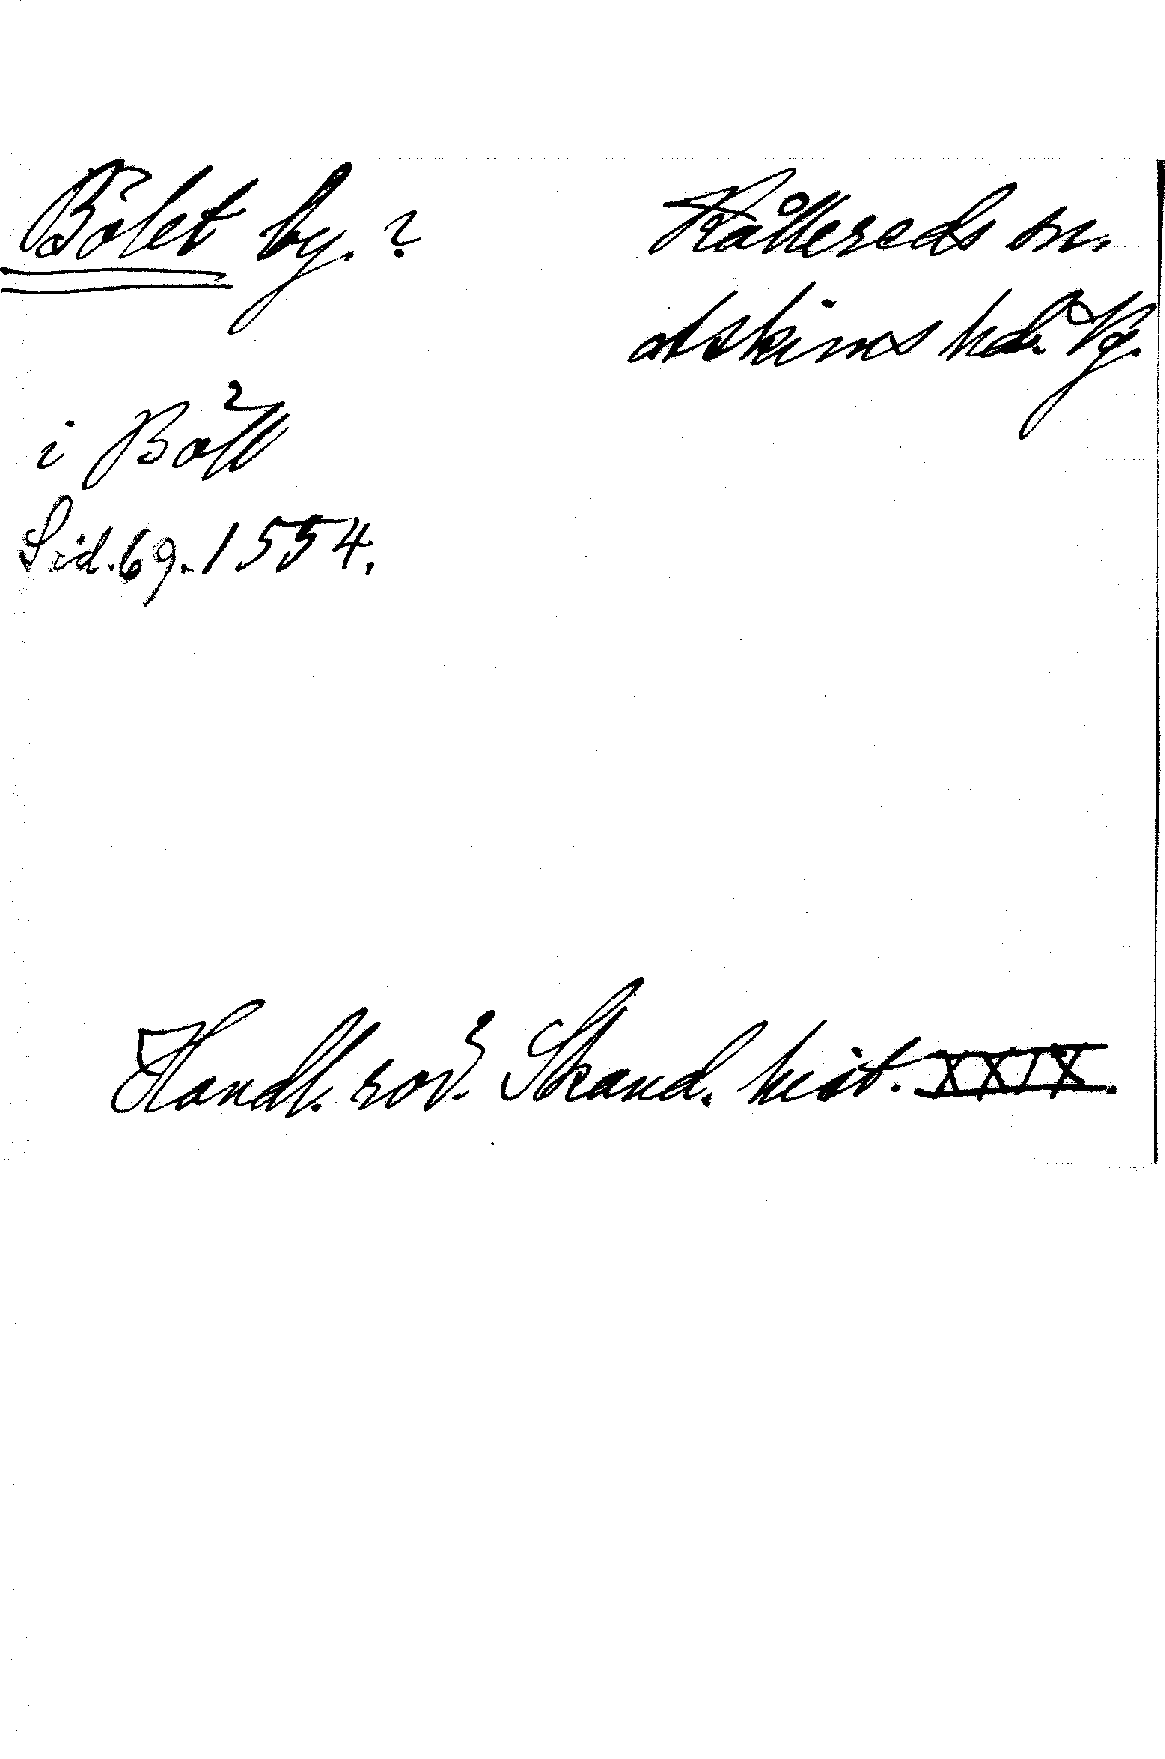 Bölet by. ?
Kållereds sn.
Askims hd. Vg.
i Böll
Sid. 69. 1554.
Handl. rör. Skand. hist. XXIX.